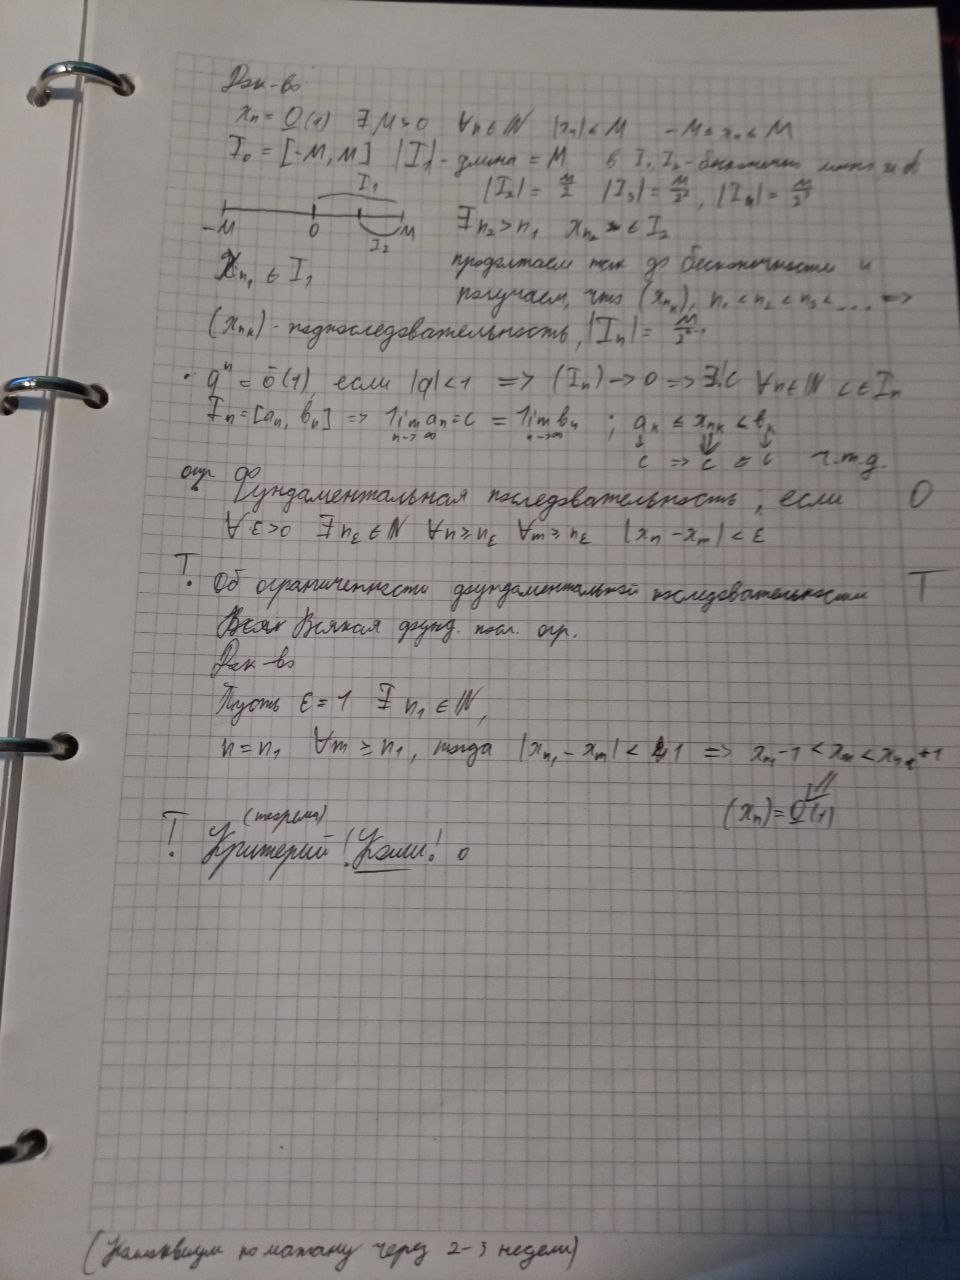 Док-во
xₙ = O(1) ∃ M > 0 ∀n ∈ ℕ |xₙ| ≤ M -M ≤ xₙ ≤ M
I₀ = [-M, M] |I₁| - длина = M в I₁, I₂ - бесконечн
I₁ |I₂| = M/2 |I₃| = M/2², |I₄| = M/2³
-M 0 I₂ M ∃ n₂ > n₁ xₙ₂ ∈ I₂
xₙ₁ ∈ I₁ продолжаем так до бесконечности и
получаем, что (xₙₖ), n₁ < n₂ < n₃ < ... =>
(xₙₖ) - подпоследовательность, |Iₙ| =
· qⁿ = ō(1), если |q| < 1 => (Iₙ) -> 0 => ∃!c ∀n ∈ ℕ c ∈ Iₙ
Iₙ = [aₙ, bₙ] => lim aₙ = c = lim bₙ ; aₖ ≤ xₙₖ ≤ bₖ
n->∞ n->∞ ↓ ⇓ ↓
c => c c ч.т.д.
опр Фундаментальная последовательность, если O
∀ ε>0 ∃ n_ε ∈ ℕ ∀n ≥ n_ε ∀m ≥ n_ε |xₙ - xₘ| < ε
T. Об ограниченности фундаментальной последовательности T
Всякая фунд. посл. огр.
Док-во
Пусть ε = 1 ∃ n₁ ∈ ℕ,
n = n₁ ∀m ≥ n₁, тогда |xₙ₁ - xₘ| < 1 => xₙ₁ - 1 < xₘ < xₙ₁ + 1
(xₙ) = O(1)
(теорема)
T. Критерий !Коши!
(Коллоквиум по матану через 2-3 недели)